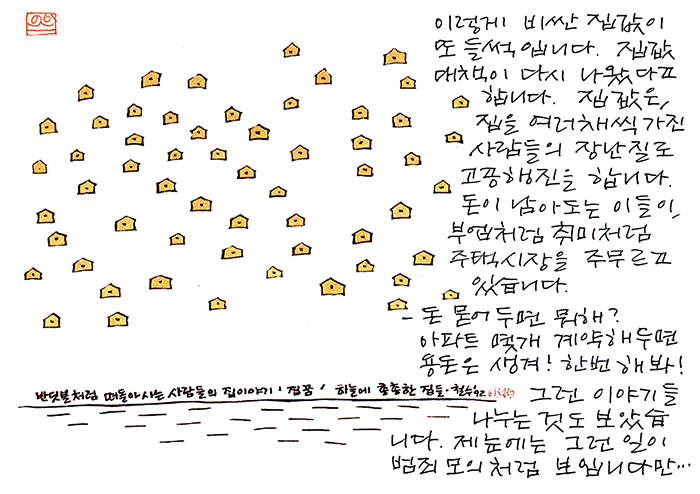 이렇게 비싼 집값이
또 들썩입니다. 집값
대책이 다시 나왔다고
합니다. 집값은,
집을 여러채씩 가진
사람들의 장난질로
고공행진을 합니다.
돈이 남아도는 이들이,
부업처럼 취미처럼
주택시장을 주무르고
있습니다.
- 돈 묻어두면 뭐해?
아파트 몇개 계약해두면
용돈은 생겨! 한번 해봐!
그런 이야기들
나누는 것도 보았습
니다. 제눈에는 그런 일이
범죄 모의처럼 보입니다만…
반딧불처럼 떠돌아 사는 사람들의 집이야기 '집꿈' 하늘에 총총한 집들. 철수92